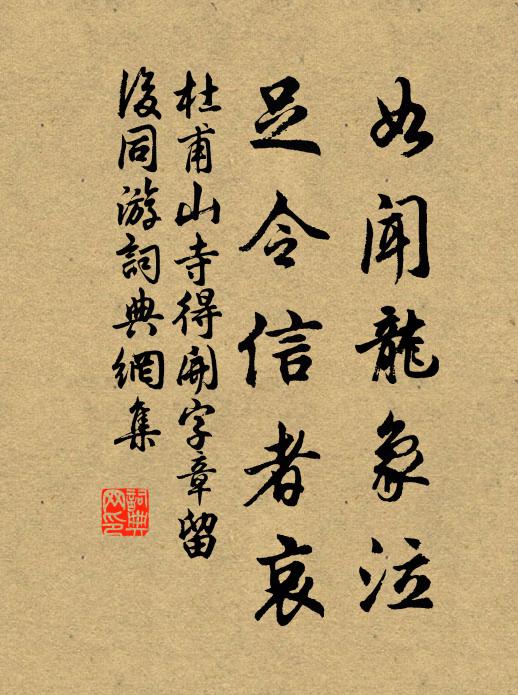 如聞龍象泣
足令信者哀
杜甫山寺得開字章留
後同游詞典網集
詞典
网印